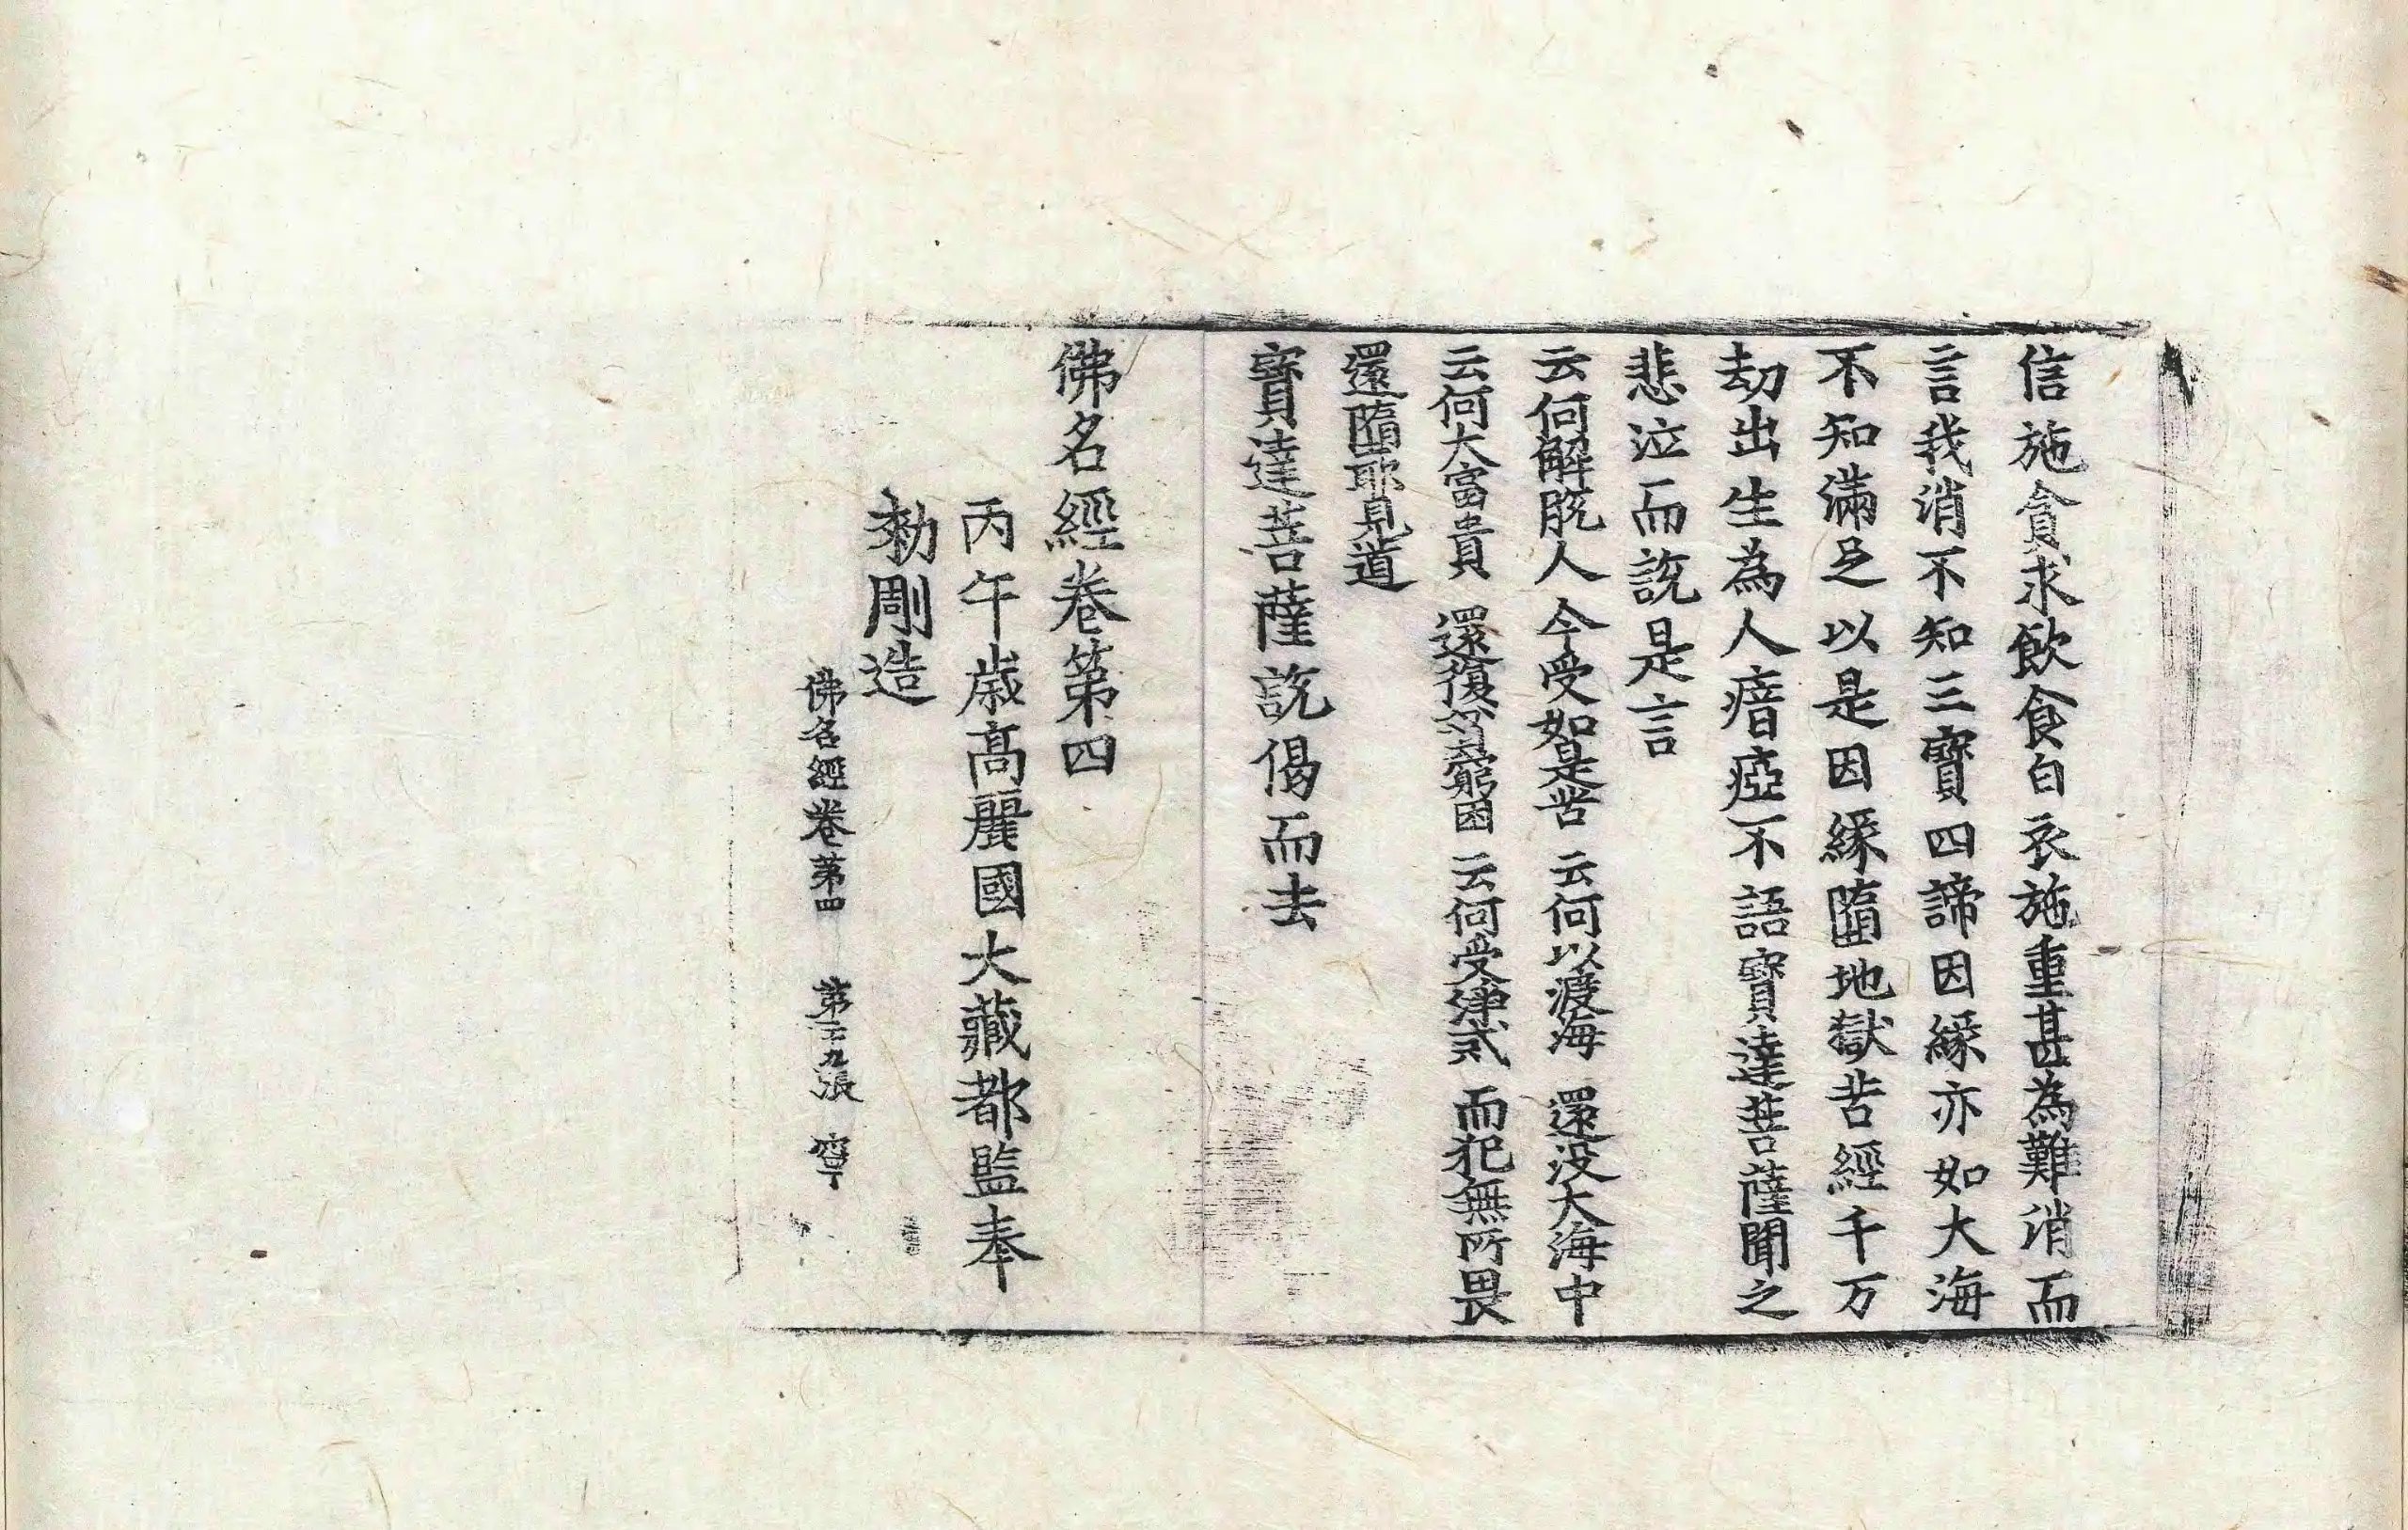 信施貪求飲食白衣施重甚為難消而
言我消不知三寶四諦因緣亦如大海
不知滿足以是因緣墮地獄苦經千万
劫出生為人瘖瘂不語寶達菩薩聞之
悲泣而說是言
云何解脫人 今受如是苦 云何以渡海 還没大海中
云何大富貴 還復貧窮困 云何受律式 而犯無所畏
還墮耶見道
寶達菩薩說偈而去
佛名經卷第四
丙午歲高麗國大藏都監奉
勅彫造
佛名經卷第四 第二九張 寧